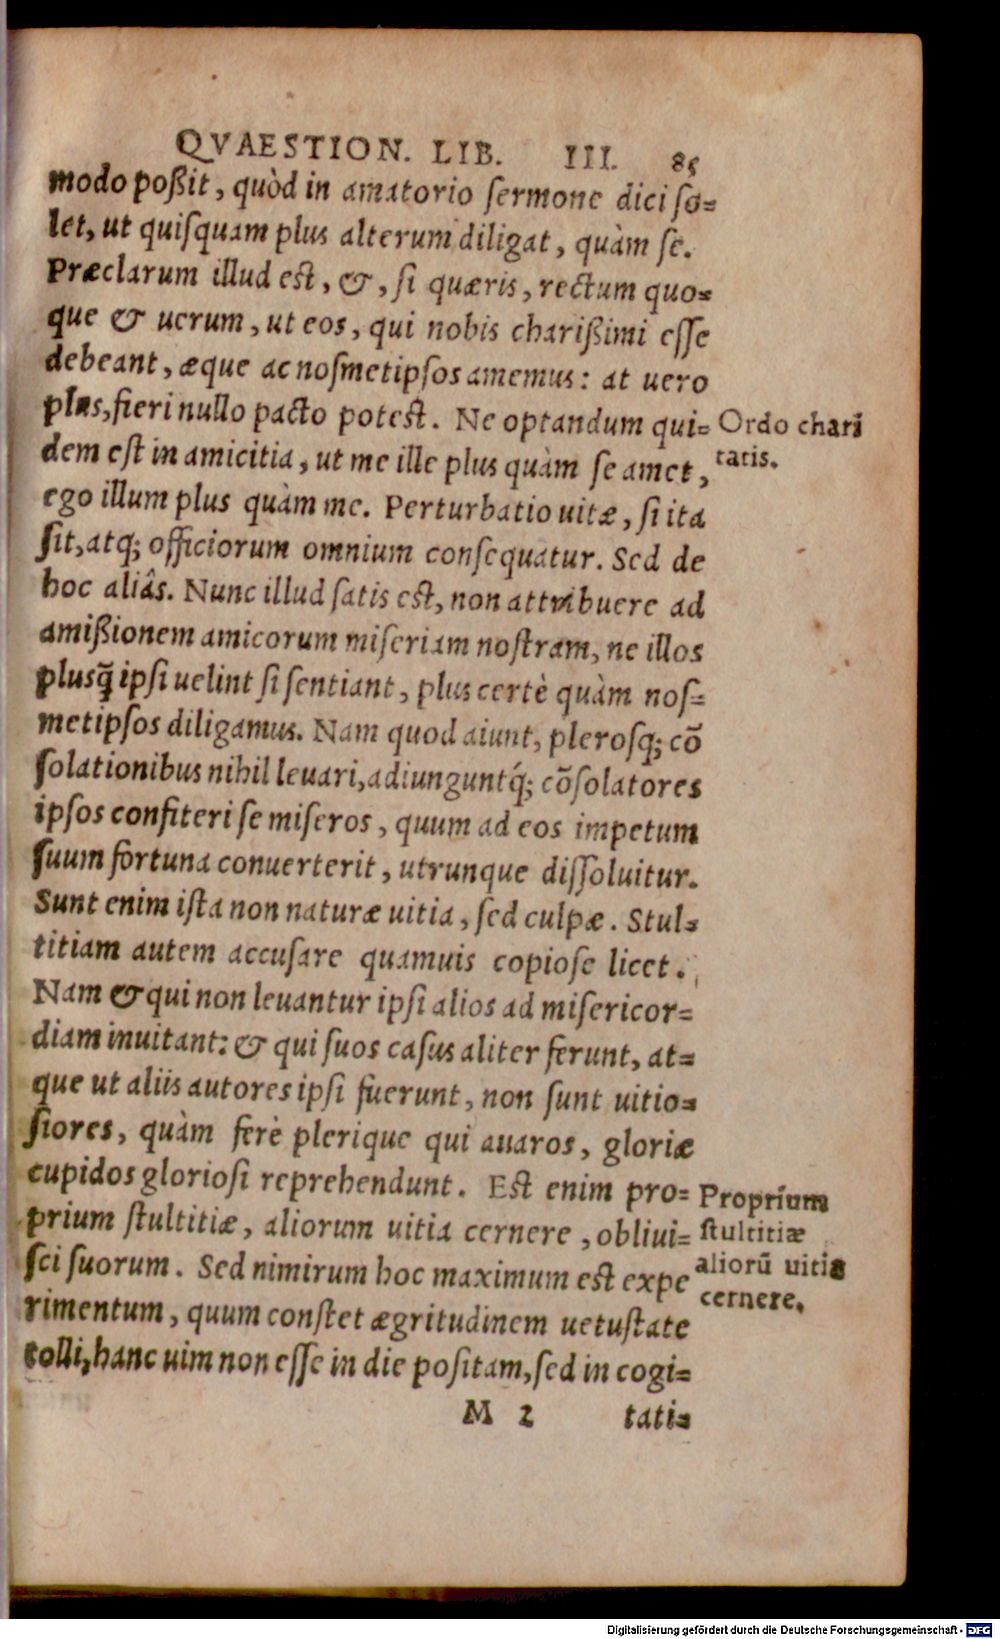 QVAESTION. LIB. III. 85
modo poßit, quòd in amatorio sermone dici so=
let, ut quisquam plus alterum diligat, quàm se.
Præclarum illud est, &, si quæris, rectum quo=
que & uerum, ut eos, qui nobis charißimi esse
debeant, æque ac nosmetipsos amemus: at uero
plus, fieri nullo pacto potest. Ne optandum qui=
Ordo chari
tatis.
dem est in amicitia, ut me ille plus quàm se amet,
ego illum plus quàm me. Perturbatio uitæ, si ita
sit, atq; officiorum omnium consequatur. Sed de
hoc aliâs. Nunc illud satis est, non attribuere ad
amißionem amicorum miseriam nostram, ne illos
plusq̃ ipsi uelint si sentiant, plus certè quàm nos=
metipsos diligamus. Nam quod aiunt, plerosq; cō
solationibus nihil leuari, adiunguntq́; cōsolatores
ipsos confiteri se miseros, quum ad eos impetum
suum fortuna conuerterit, utrunque dissoluitur.
Sunt enim ista non naturæ uitia, sed culpæ. Stul=
titiam autem accusare quamuis copiose licet.
Nam & qui non leuantur ipsi alios ad misericor=
diam inuitant: & qui suos casus aliter ferunt, at=
que ut aliis autores ipsi fuerunt, non sunt uitio=
siores, quàm ferè plerique qui auaros, gloriæ
cupidos gloriosi reprehendunt. Est enim pro=
Proprium
stultitiæ
aliorū uitia
cernere.
prium stultitiæ, aliorum uitia cernere, obliui=
sci suorum. Sed nimirum hoc maximum est expe
rimentum, quum constet ægritudinem uetustate
tolli, hanc uim non esse in die positam, sed in cogi=
M 2 tati=
Digitalisierung gefördert durch die Deutsche Forschungsgemeinschaft - DFG